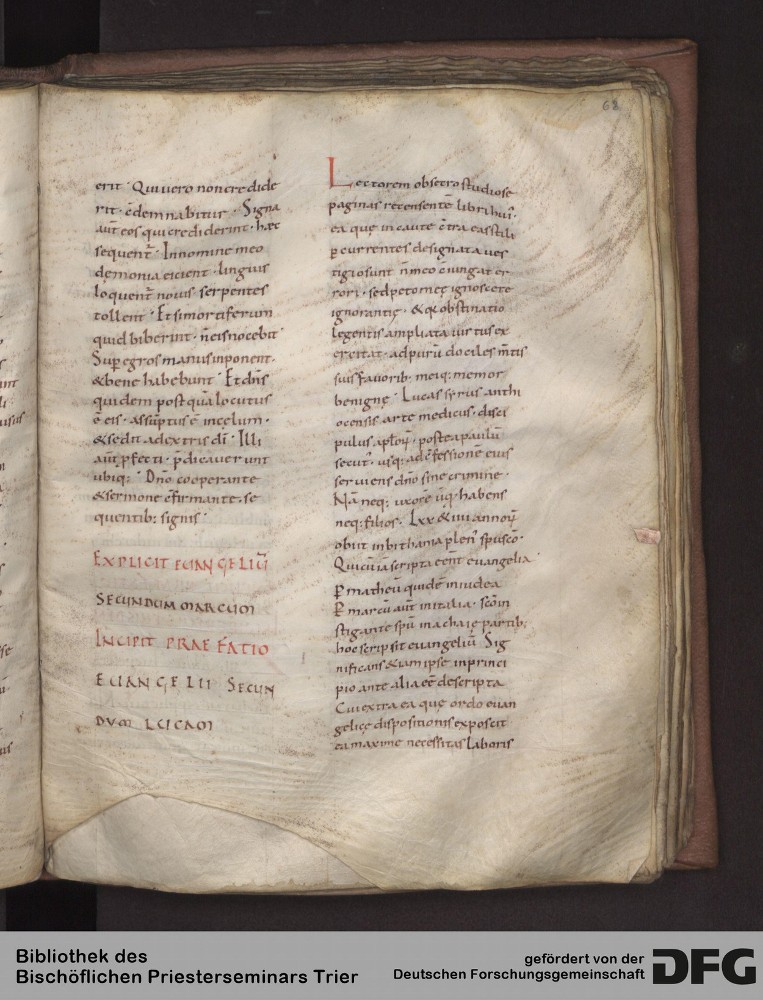 68
erit · Qui uero non credide
rit · c̄demnabitur · Signa
aut̄ eos qui crediderint · hæc
sequent̄ · In nomine meo
demonia eicient · linguis
loquent̄ nouis · serpentes
tollent · Et si mortiferum
quid biberint · n̄ eis nocebit
Sup̄ egros manus inponent ·
& bene habebunt · Et dn̄s
quidem postquā locutus
ē eis · assūptus ē in celum ·
& sedit a dextris dī · Illi
aut̄ p̄fecti · p̄dicauerunt
ubiq; · Dn̄o cooperante
& sermonē c̄firmante · se
quentib; signis ·
EXPLICIT EUANGELIŪ
SECUNDUM MARCUM
INCIPIT PRAEFATIO
EUANGELII SECUN
DUM LUCAM
Lectorem obsecro studiose
paginas recensentē libri hui᷒ ·
ea quę incaute c̄tra ea
p̄currentes designata ues
tigio sunt n̄ meo c̄iungat er
rori · sed peto me ignoscite
ignorantię ·
legentis ampliata uirtus ex
ercitat · ad purū dociles m̄tis
suis fauorib; meiq; memor
benigne · Lucas syrus anthi
ocensis arte medicus · disci
pulus aptoꝝ · postea paulū
secut᷒ · usq; ad c̄fessionē eius
seruiens dn̄o sine crimine ·
Nā neq; uxorē ūq̄ habens
neq; filios · Lxx & iiii annoꝝ
obiit in bithania plen᷒ spū sc̄o ·
Quī cū iā scripta eēnt euangelia ·
p̄ matheū quidē in iudea
P̄ marcū aut̄ in italia · sc̄o in
stigante spū in achaie partib;
hoc scripsit euangeliū · Sig
nificans & iam ipse in princi
pio ante alia eē descripta
Cui extra ea que ordo euan
gelicę dispositionis exposcit
ea maxime necessitas laboris
Bibliothek des
Bischöflichen Priesterseminars Trier
gefördert von der
Deutschen Forschungsgemeinschaft
DFG